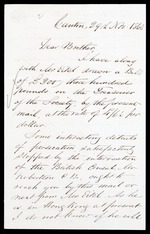 Canton, 29th Nov 186
Dear Brother,
I have along
with Mr Eitel drawn a Bill
of £300, three hundred
pounds on the Treasurer
of the Society by the present
mail at the rate of 4/6 per
dollar.
Some interesting details
of persecution satisfactorily
stopped by the intervention
of the British Consul
Robertson C.B. ought to
reach you by this mail or
next from Mr Eitel. As he
is in Hong Kong at present
I do not know if he will